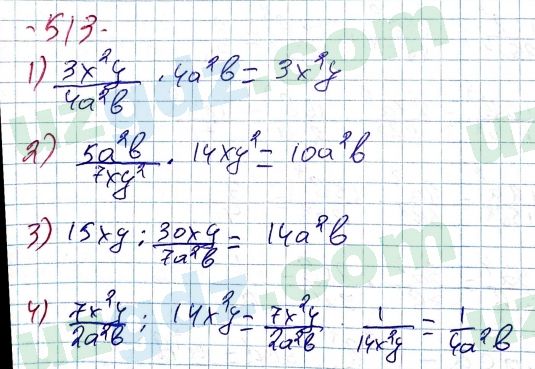 -513-
1) 3x²y/4a²b · 4a²b = 3x²y
2) 5a²b/7xy² · 14xy² = 10a²b
3) 15xy : 30xy/7a²b = 14a²b
4) 7x²y/2a²b : 14x²y = 7x²y/2a²b · 1/14x²y = 1/4a²b
uzgdz.com